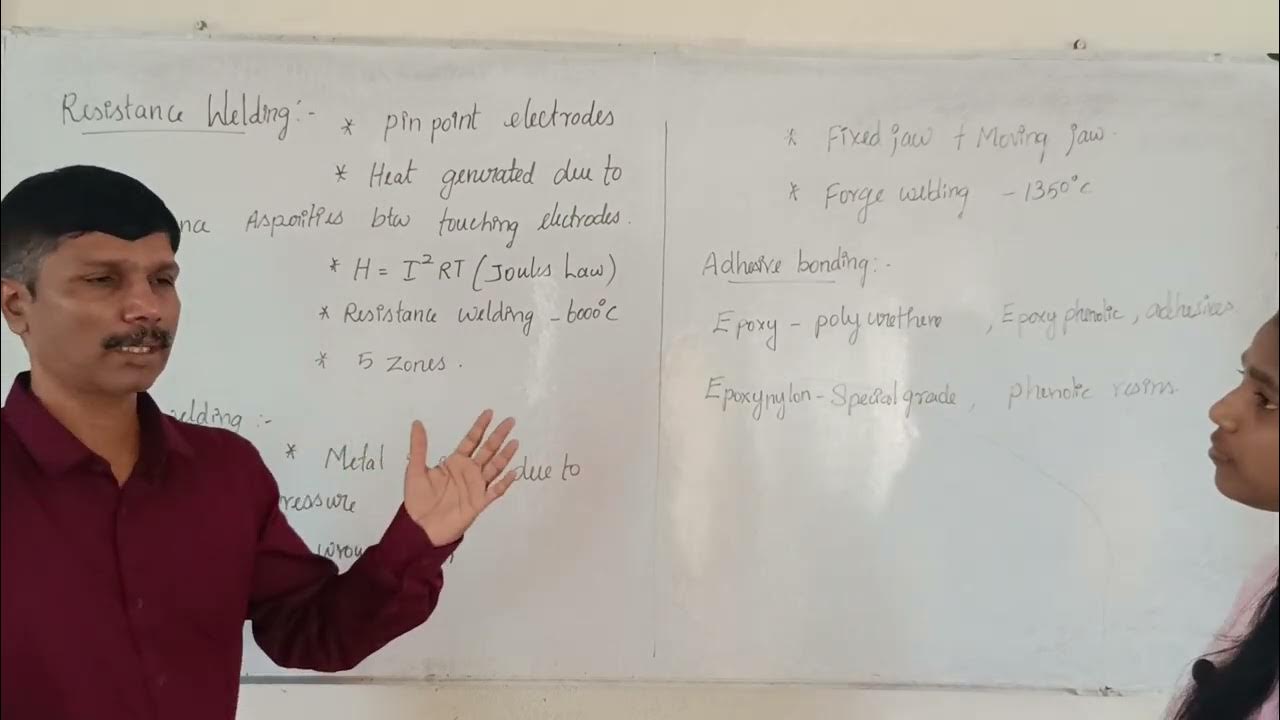 Resistance Welding :- * pin point electrodes
* Heat generated due to
Asporities btw touching electrodes.
* H = I²RT (Joules Law)
* Resistance welding - 6000°C
* 5 Zones.
elding :-
* Metal due to
ressure
wrou
* Fixed jaw + Moving jaw.
* Forge welding - 1350°C
Adhesive bonding :-
Epoxy - polyurethene , Epoxy phenolic, adhesives
Epoxynylon - Special grade , phenolic resins.